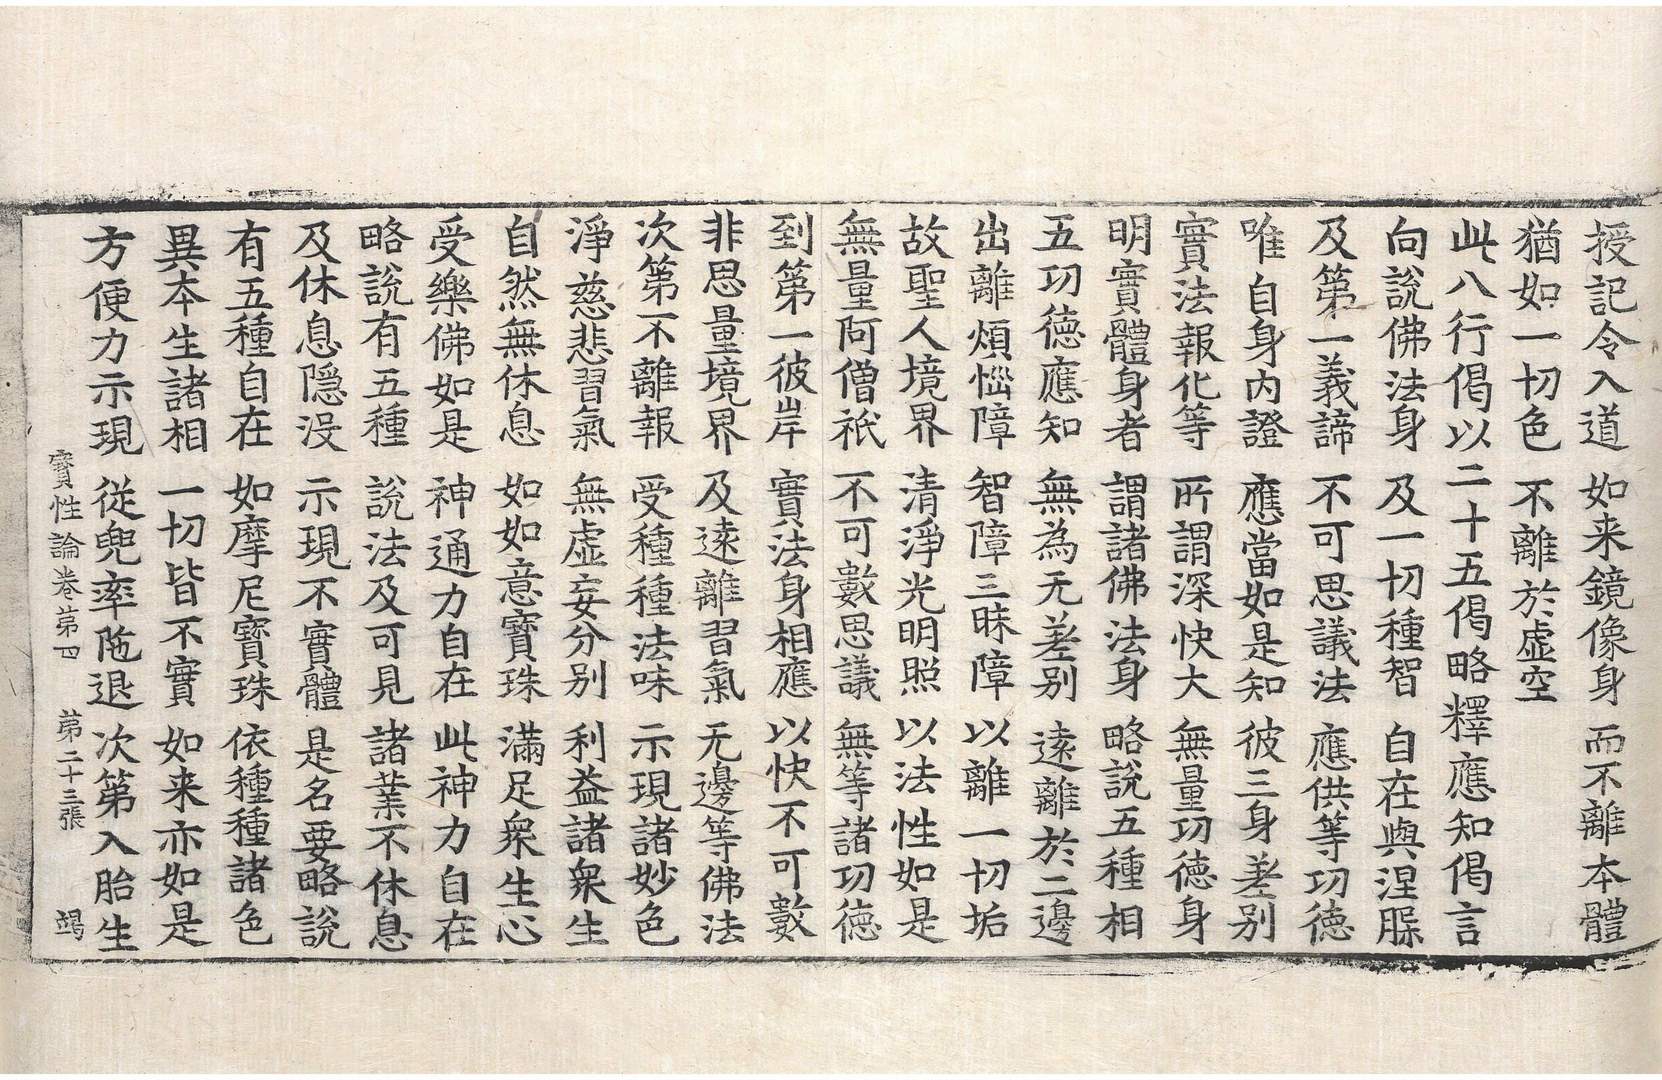 授記令入道 如来鏡像身 而不離本體
猶如一切色 不離於虛空
此八行偈以二十五偈略釋應知偈言
向說佛法身 及一切種智 自在與涅槃
及第一義諦 不可思議法 應供等功德
唯自身内證 應當如是知 彼三身差別
實法報化等 所謂深快大 無量功德身
明實體身者 謂諸佛法身 略說五種相
五功德應知 無為无差别 遠離於二邊
出離煩惱障 智障三昧障 以離一切垢
故聖人境界 清淨光明照 以法性如是
無量阿僧祇 不可數思議 無等諸功德
到第一彼岸 實法身相應 以快不可數
非思量境界 及遠離習氣 无邊等佛法
次第不離報 受種種法味 示現諸妙色
淨慈悲習氣 無虛妄分别 利益諸衆生
自然無休息 如如意寶珠 滿足衆生心
受樂佛如是 神通力自在 此神力自在
略說有五種 說法及可見 諸業不休息
及休息隱没 示現不實體 是名要略說
有五種自在 如摩尼寶珠 依種種諸色
異本生諸相 一切皆不實 如来亦如是
方便力示現 從兜率陁退 次第入胎生
寶性論卷苐四 苐二十三張 竭